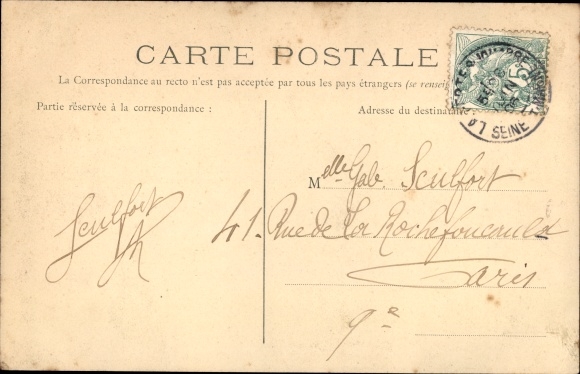 CARTE POSTALE
La Correspondance au recto n'est pas acceptée par tous les pays étrangers (se renseig
Partie réservée à la correspondance :
Adresse du destinataire :
5
SEINE
Melle Gab. Sculfort
41. Rue de La Rochefoucauld
Paris
9e
Sculfort